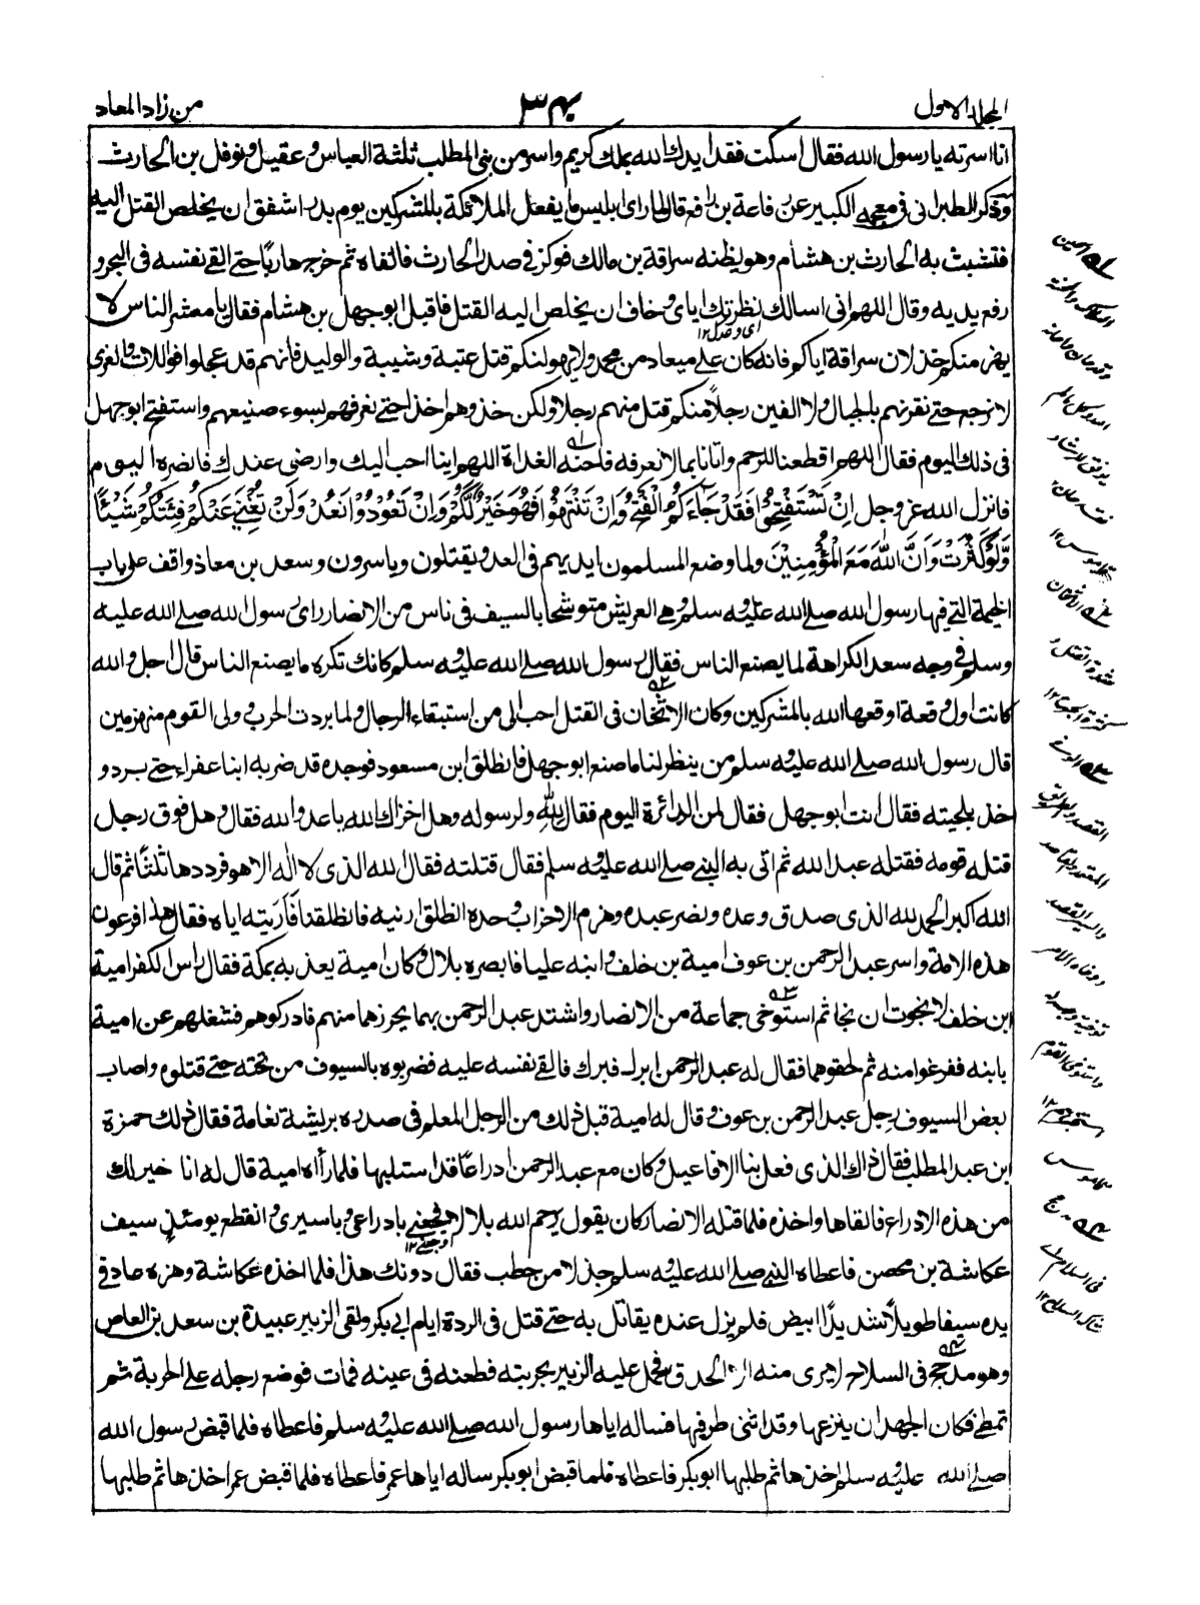 المجلد الاول
من زاد المعاد
انا اسرته يا رسول الله فقال اسكت فقد ايدك الله بملك كريم واسر من بنى المطلب ثلثة العباس وعقيل ونوفل بن الحارث
وذكر الطبرانى فى معجمه الكبير عن رفاعة بن رافع قال لما راى ابليس ما يفعل الملائكة بالمشركين يوم بدر اشفق ان يخلص القتل اليه
فتشبث به الحارث بن هشام وهو يظنه سراقة بن مالك فوكز فى صدر الحارث فالقاه ثم خرج هاربًا حتى القى نفسه فى البحر و
رفع يديه وقال اللهم انى اسالك نظرتك اياى وخاف ان يخلص اليه القتل فاقبل ابو جهل بن هشام فقال يا معشر الناس لا
يهزمنكم خذلان سراقة اياكم فانه كان على ميعاد من محمد ولا يهولنكم قتل عتبة وشيبة والوليد فانهم قد عجلوا فواللات والعزى
لا نرجع حتى نقرنهم بالحبال ولا الفين رجلاً منكم قتل منهم رجلا ولكن خذوهم اخذا حتى نعرفهم بسوء صنيعهم واستفتح ابو جهل
فى ذلك اليوم فقال اللهم اقطعنا للرحم واتانا بما لا نعرفه فاحنه الغداة اللهم اينا احب اليك وارضى عندك فانصره اليوم
فانزل الله عز وجل اِنْ تَسْتَفْتِحُوْا فَقَدْ جَاۤءَكُمُ الْفَتْحُ وَاِنْ تَنْتَهُوْا فَهُوَ خَيْرٌ لَّكُمْ وَاِنْ تَعُوْدُوْا نَعُدْ وَلَنْ تُغْنِيَ عَنْكُمْ فِئَتُكُمْ شَيْئًا
وَّلَوْ كَثُرَتْ وَاَنَّ اللّٰهَ مَعَ الْمُؤْمِنِيْنَ ولما وضع المسلمون ايديهم فى العدو يقتلون وياسرون وسعد بن معاذ واقف على باب
الخيمة التى فيها رسول الله صلى الله عليه وسلم وهى العريش متوشحا بالسيف فى ناس من الانصار راى رسول الله صلى الله عليه
وسلم فى وجه سعد الكراهة لما يصنع الناس فقال رسول الله صلى الله عليه وسلم كانك تكره ما يصنع الناس قال اجل والله
كانت اول وقعة اوقعها الله بالمشركين وكان الاثخان فى القتل احب الى من استبقاء الرجال ولما بردت الحرب وولى القوم منهزمين
قال رسول الله صلى الله عليه وسلم من ينظر لنا ما صنع ابو جهل فانطلق ابن مسعود فوجده قد ضربه ابنا عفراء حتى برد و
اخذ بلحيته فقال انت ابو جهل فقال لمن الدائرة اليوم فقال لله ولرسوله وهل اخزاك الله يا عدو الله فقال وهل فوق رجل
قتله قومه فقتله عبد الله ثم اتى به النبى صلى الله عليه وسلم فقال قتلته فقال الله الذى لا اله الا هو فرددها ثلثًا ثم قال
الله اكبر الحمد لله الذى صدق وعده ونصر عبده وهزم الاحزاب وحده انطلق ارنيه فانطلقنا فاريته اياه فقال هذا فرعون
هذه الامة واسر عبد الرحمن بن عوف امية بن خلف وابنه عليا فابصره بلال وكان امية يعذبه بمكة فقال راس الكفر امية
ابن خلف لا نجوت ان نجا ثم استوخى جماعة من الانصار واشتد عبد الرحمن بهما يحرزهما منهم فادركوهم فشغلهم عن امية
بابنه ففرغوا منه ثم لحقوهما فقال له عبد الرحمن ابرك فبرك فالقى نفسه عليه فضربوه بالسيوف من تحته حتى قتلوه واصاب
بعض السيوف رجل عبد الرحمن بن عوف وقال له امية قبل ذلك من الرجل المعلم فى صدره بريشة نعامة فقال ذلك حمزة
ابن عبد المطلب فقال ذاك الذى فعل بنا الافاعيل وكان مع عبد الرحمن ادراعًا قد استلبها فلما رأاه امية قال له انا خير لك
من هذه الادراع فالقاها واخذه فلما قتله الانصار كان يقول يرحم الله بلالا فجعنى بادراعى وباسيرى وانقطع يومئذٍ سيف
عكاشة بن محصن فاعطاه النبى صلى الله عليه وسلم جذلا من حطب فقال دونك هذا فلما اخذه عكاشة وهزه عاد فى
يده سيفا طويلًا شديدًا ابيض فلم يزل عنده يقاتل به حتى قتل فى الردة ايام ابى بكر ولقى الزبير عبيدة بن سعد بن العاص
وهو مدجج فى السلاح لا يرى منه الا الحدق فحمل عليه الزبير بحربته فطعنه فى عينه فمات فوضع رجله على الحربة ثم
تمطى فكان الجهد ان ينزعها وقد انثنى طرفها فساله اياها رسول الله صلى الله عليه وسلم فاعطاه فلما قبض رسول الله
صلى الله عليه وسلم اخذها ثم طلبها ابو بكر فاعطاه فلما قبض ابو بكر ساله اياها عمر فاعطاه فلما قبض عمر اخذها ثم طلبها